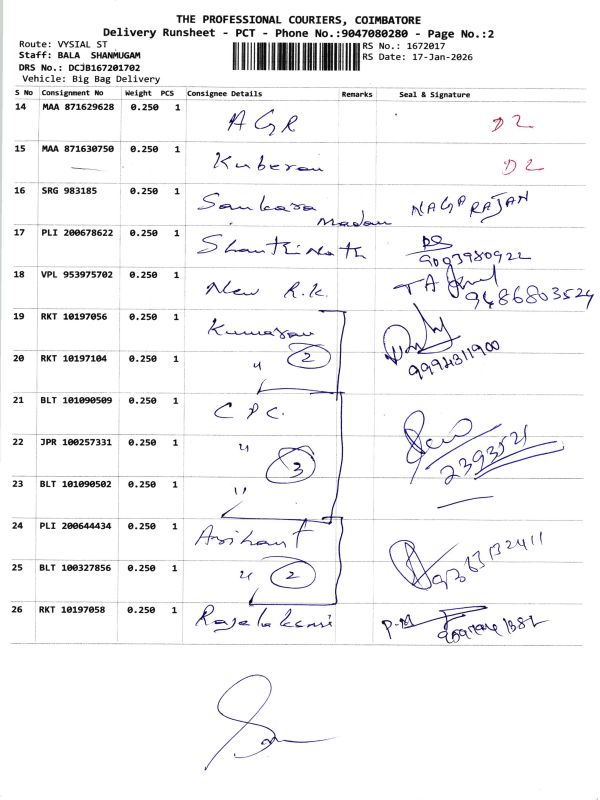 THE PROFESSIONAL COURIERS, COIMBATORE
Delivery Runsheet - PCT - Phone No.:9047080280 - Page No.:2
Route: VYSIAL ST
RS No.: 1672017
Staff: BALA SHANMUGAM
RS Date: 17-Jan-2026
DRS No.: DCJB167201702
Vehicle: Big Bag Delivery
S No Consignment No Weight PCS Consignee Details Remarks Seal & Signature
14 MAA 871629628 0.250 1 AGR D2
15 MAA 871630750 0.250 1 Kuberan D2
16 SRG 983185 0.250 1 Sankara Madan NAGARAJAN
17 PLI 200678622 0.250 1 Shanthi Nath 9003980922
18 VPL 953975702 0.250 1 New R.K. 9486803524
19 RKT 10197056 0.250 1 Kumaran
20 RKT 10197104 0.250 1 " 2 9994311900
21 BLT 101090509 0.250 1 C P C.
22 JPR 100257331 0.250 1 " 3 2393521
23 BLT 101090502 0.250 1 "
24 PLI 200644434 0.250 1 Arihant
25 BLT 100327856 0.250 1 " 2
26 RKT 10197058 0.250 1 Rajalakshmi P.M